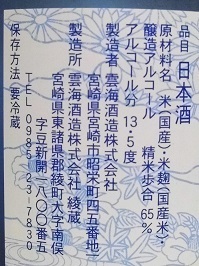 品目 日本酒
原材料名 米(国産)・米麹(国産米)・
醸造アルコール 精米歩合 65%
アルコール分 13・5度
製造者 雲海酒造株式会社
宮崎県宮崎市昭栄町四五番地一
製造所 雲海酒造株式会社 綾蔵
宮崎県東諸県郡綾町大字南俣
字豆新開一八〇〇番五
TEL 0985-23-7830
保存方法 要冷蔵